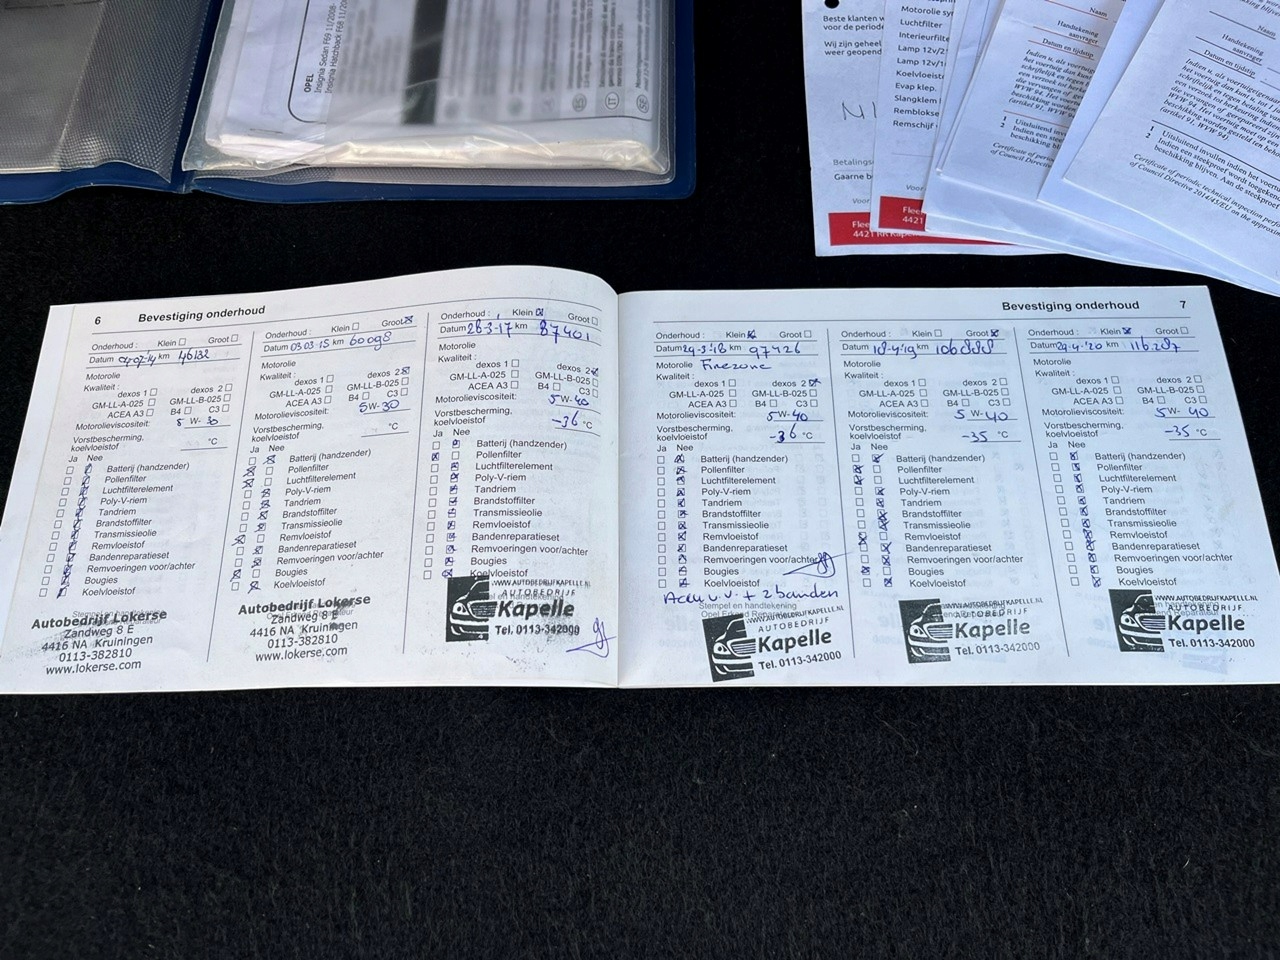 OPEL
Insignia Sedan F69 11/2008-
Insignia Hatchback F68 11/200
Beste klanten
voor de periode
Wij zijn geheel
weer geopend
Betalings
Gaarne b
Voor
Flee
4421 RR Kape
Motorolie sy
Luchtfilter
Interieurfilte
Lamp 12v/2
Lamp 12v/
Koelvloeist
Evap klep.
Slangklem
Remblokse
Remschijf
Voor
Flee
4421
Naam
Handtekening
aanvrager
Datum en tijdstip
Naam
Handtekening
aanvrager
Datum en tijdstip
1 Uitsluitend invullen indien het voertu
2 Indien een steekproef wordt toegekend
beschikking blijven. Aan de steekproef
Certificate of periodic technical inspection
of Council Directive 2014/45/EU on the
6 Bevestiging onderhoud
Onderhoud : Klein Groot
Datum 04-07-14 km 46132
Motorolie
Kwaliteit :
dexos 1 dexos 2
GM-LL-A-025 GM-LL-B-025
ACEA A3 B4 C3
Motorolieviscositeit: 5 W- 30
Vorstbescherming,
koelvloeistof °C
Ja Nee
Batterij (handzender)
Pollenfilter
Luchtfilterelement
Poly-V-riem
Tandriem
Brandstoffilter
Transmissieolie
Remvloeistof
Bandenreparatieset
Remvoeringen voor/achter
Bougies
Koelvloeistof
Stempel en handtekening
Autobedrijf Lokerse
Zandweg 8 E
4416 NA Kruiningen
0113-382810
www.lokerse.com
Onderhoud : Klein Groot
Datum 03-03-15 km 60098
Motorolie
Kwaliteit :
dexos 1 dexos 2
GM-LL-A-025 GM-LL-B-025
ACEA A3 B4 C3
Motorolieviscositeit: 5W-30
Vorstbescherming,
koelvloeistof °C
Ja Nee
Batterij (handzender)
Pollenfilter
Luchtfilterelement
Poly-V-riem
Tandriem
Brandstoffilter
Transmissieolie
Remvloeistof
Bandenreparatieset
Remvoeringen voor/achter
Bougies
Koelvloeistof
Autobedrijf Lokerse
Zandweg 8 E
4416 NA Kruiningen
0113-382810
www.lokerse.com
Onderhoud : Klein Groot
Datum 28-3-17 km 87401
Motorolie
Kwaliteit :
dexos 1 dexos 2
GM-LL-A-025 GM-LL-B-025
ACEA A3 B4 C3
Motorolieviscositeit: 5W-40
Vorstbescherming,
koelvloeistof -36 °C
Ja Nee
Batterij (handzender)
Pollenfilter
Luchtfilterelement
Poly-V-riem
Tandriem
Brandstoffilter
Transmissieolie
Remvloeistof
Bandenreparatieset
Remvoeringen voor/achter
Bougies
Koelvloeistof
WWW.AUTOBEDRIJFKAPELLE.NL
AUTOBEDRIJF
Kapelle
Tel. 0113-342000
Bevestiging onderhoud 7
Onderhoud : Klein Groot
Datum 29-3-'18 km 97426
Motorolie Firezone
Kwaliteit :
dexos 1 dexos 2
GM-LL-A-025 GM-LL-B-025
ACEA A3 B4 C3
Motorolieviscositeit: 5W-40
Vorstbescherming,
koelvloeistof -36 °C
Ja Nee
Batterij (handzender)
Pollenfilter
Luchtfilterelement
Poly-V-riem
Tandriem
Brandstoffilter
Transmissieolie
Remvloeistof
Bandenreparatieset
Remvoeringen voor/achter
Bougies
Koelvloeistof
Accu v.v. + 2 banden
Stempel en handtekening
WWW.AUTOBEDRIJFKAPELLE.NL
AUTOBEDRIJF
Kapelle
Tel. 0113-342000
Onderhoud : Klein Groot
Datum 18-4-'19 km 106888
Motorolie
Kwaliteit :
dexos 1 dexos 2
GM-LL-A-025 GM-LL-B-025
ACEA A3 B4 C3
Motorolieviscositeit: 5W-40
Vorstbescherming,
koelvloeistof -35 °C
Ja Nee
Batterij (handzender)
Pollenfilter
Luchtfilterelement
Poly-V-riem
Tandriem
Brandstoffilter
Transmissieolie
Remvloeistof
Bandenreparatieset
Remvoeringen voor/achter
Bougies
Koelvloeistof
WWW.AUTOBEDRIJFKAPELLE.NL
AUTOBEDRIJF
Kapelle
Tel. 0113-342000
Onderhoud : Klein Groot
Datum 29-4-'20 km 116287
Motorolie
Kwaliteit :
dexos 1 dexos 2
GM-LL-A-025 GM-LL-B-025
ACEA A3 B4 C3
Motorolieviscositeit: 5W-40
Vorstbescherming,
koelvloeistof -35 °C
Ja Nee
Batterij (handzender)
Pollenfilter
Luchtfilterelement
Poly-V-riem
Tandriem
Brandstoffilter
Transmissieolie
Remvloeistof
Bandenreparatieset
Remvoeringen voor/achter
Bougies
Koelvloeistof
WWW.AUTOBEDRIJFKAPELLE.NL
AUTOBEDRIJF
Kapelle
Tel. 0113-342000